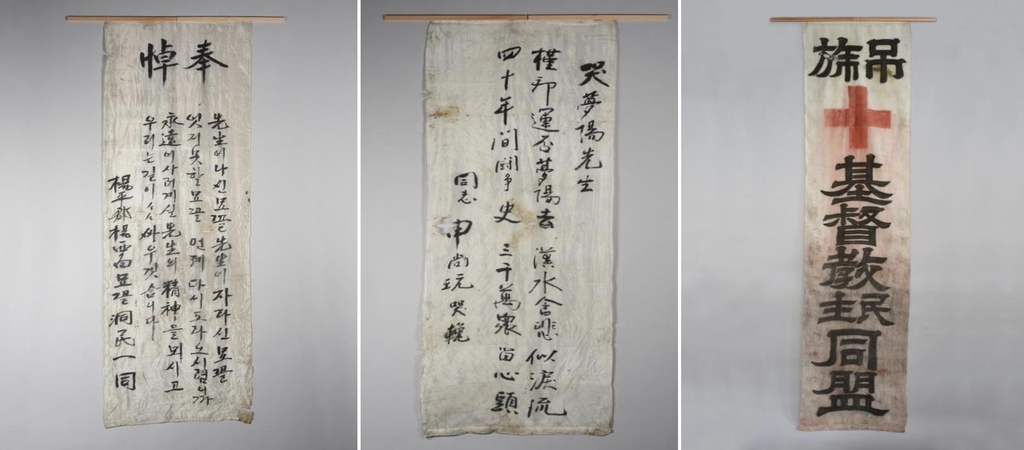 奉悼
先生이나신묘꼴 先生이자라신묘꼴
잇지못할묘꼴 언제다시도라오시렴니까
永遠이사러계신先生의精神을뫼시고
우리는길이〃싸우겟습니다
楊平郡楊西面묘꼴洞民一同
哭夢陽先生
槿邦運否夢陽去 漢水含悲似淚流
四十年间鬪争史 三千萬衆留心頭
同志 申尚玩 哭輓
吊旗
基督教民主同盟